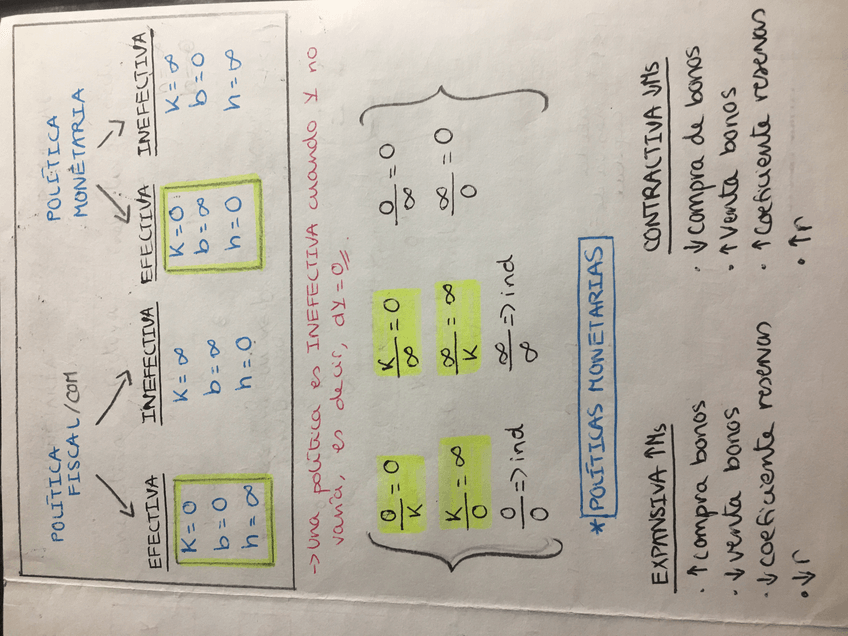 POLÍTICA FISCAL/COM
POLÍTICA MONETARIA
EFECTIVA INEFECTIVA EFECTIVA INEFECTIVA
K=0 K=∞ K=0 K=∞
b=0 b=∞ b=∞ b=0
h=∞ h=0 h=0 h=∞
→ Una política es INEFECTIVA cuando Y no
varía, es decir, dY=0
0/K=0 K/∞=0 0/∞=0
K/0=∞ ∞/K=∞ ∞/0=0
0/0=>ind ∞/∞=>ind
*POLÍTICAS MONETARIAS
EXPANSIVA ↑Ms
· ↑compra bonos
· ↓venta bonos
· ↓coeficiente reservas
· ↓r
CONTRACTIVA ↓Ms
· ↓compra de bonos
· ↑venta bonos
· ↑coeficiente reservas
· ↑r